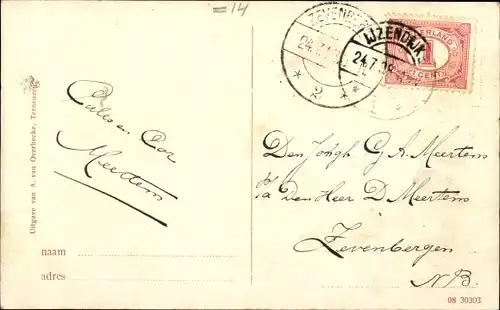 =14
ZEVENBE
24.7.1
2
IJZENDIJK
24.7.1
NEDERLAND
1
CENT
Den Jongh G A Meertens
p/a den Heer D Meertens
Zevenbergen
N.B.
Cor
Meertens
Uitgave van A. van Overbecke, Terneuzen
naam
adres
08 30303